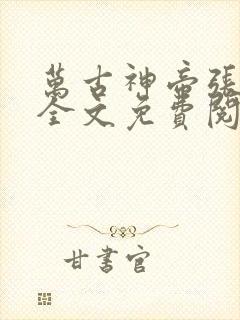 萬古神帝張
全文免費閱
甘書官